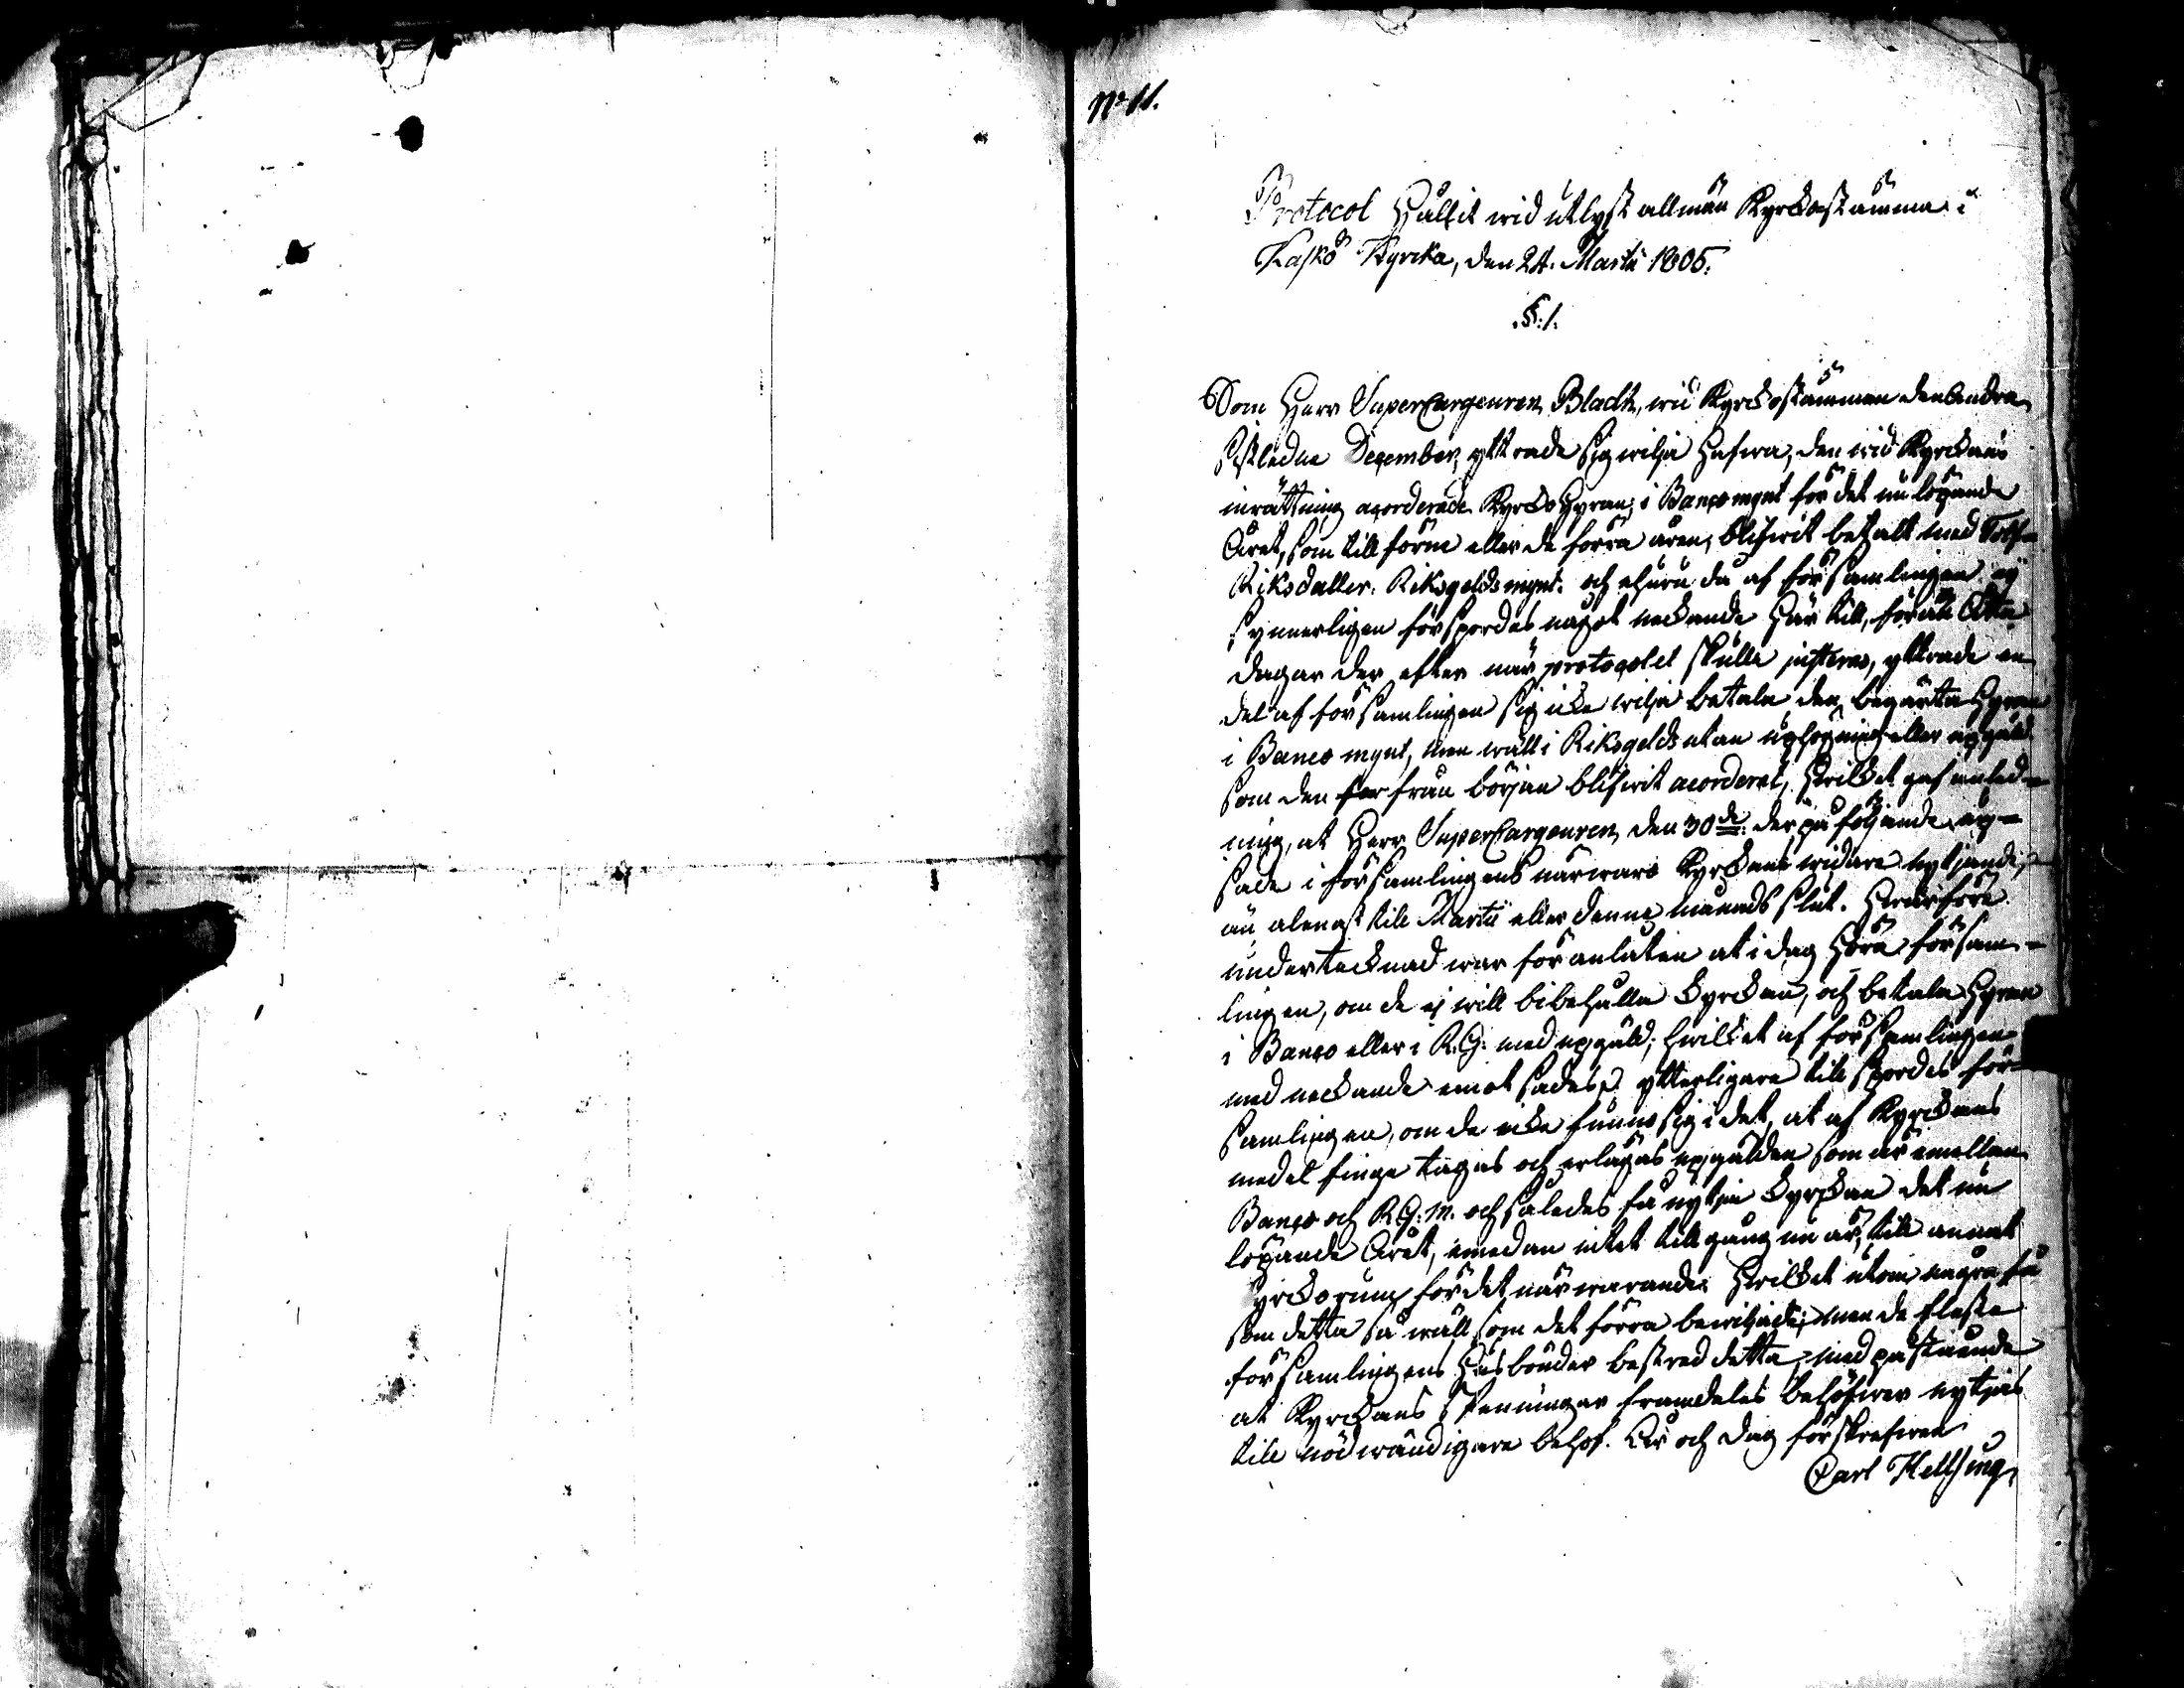 No 11.
Protocol Hållit wid utlyst allmän Kyrckostämma i
Kaskö Kyrcka, den 24. Martii 1805.
§. 1.
Som Herr SuperCargeuren Bladh, wid Kyrckostämman den andra
sistledne December, yttrade sig wilja hafwa, den wid Kyrckans
inrättning acorderade Kyrcko Hyran, i Banco mynt för det nu löpande
Året, som till förne eller de förra åren, blifwit betalt med Tolf
Riksdaller. Riksgelds mynt. och ehuru då af församlingen ej
synnerligen förspordes något neckande här till, för än Åtta
dagar der efter när protocollet skulle justeras, yttrade en
del af församlingen sig icke wilja betala den begärta Hyran
i Banco mynt, men wäll i Riksgelds utan uphögning eller opgäld
som den för från början blifwit acorderat, Hwilcket gaf anled-
ning, at Herr SuperCargeuren den 30de der på följande up-
sade i församlingens närwaro Kyrckans widare nytjande,
än alenast till Martii eller denne månads slut. Hwarföre
undertecknad war föranlåten at i dag höra försam-
lingen, om de ej will bibehålla Kyrckan, och betala Hyran
i Banco eller i R.G. med opgäld; hwilcket af församlingen
med neckande emot sades. ytterligare till spordes för-
samlingen, om de icke funno sig i det, at af Kyrckans
medel finge tagas och erläggas opgälden som är emellan
Banco och R.G. M. och således få nytja Kyrckan det nu
löpande Året, emedan intet tillgång nu är, till annat
Kyrckorum för det närwarande. Hwilcket utom några få
som detta så wäll som det förra bewiljade; men de flesta
församlingens Husbönder bestred detta, med påstående
at Kyrckans Penningar framdeles behöfwer nytjas
till nödwändigare behof. År och dag förskrefwen
Carl Hellsing